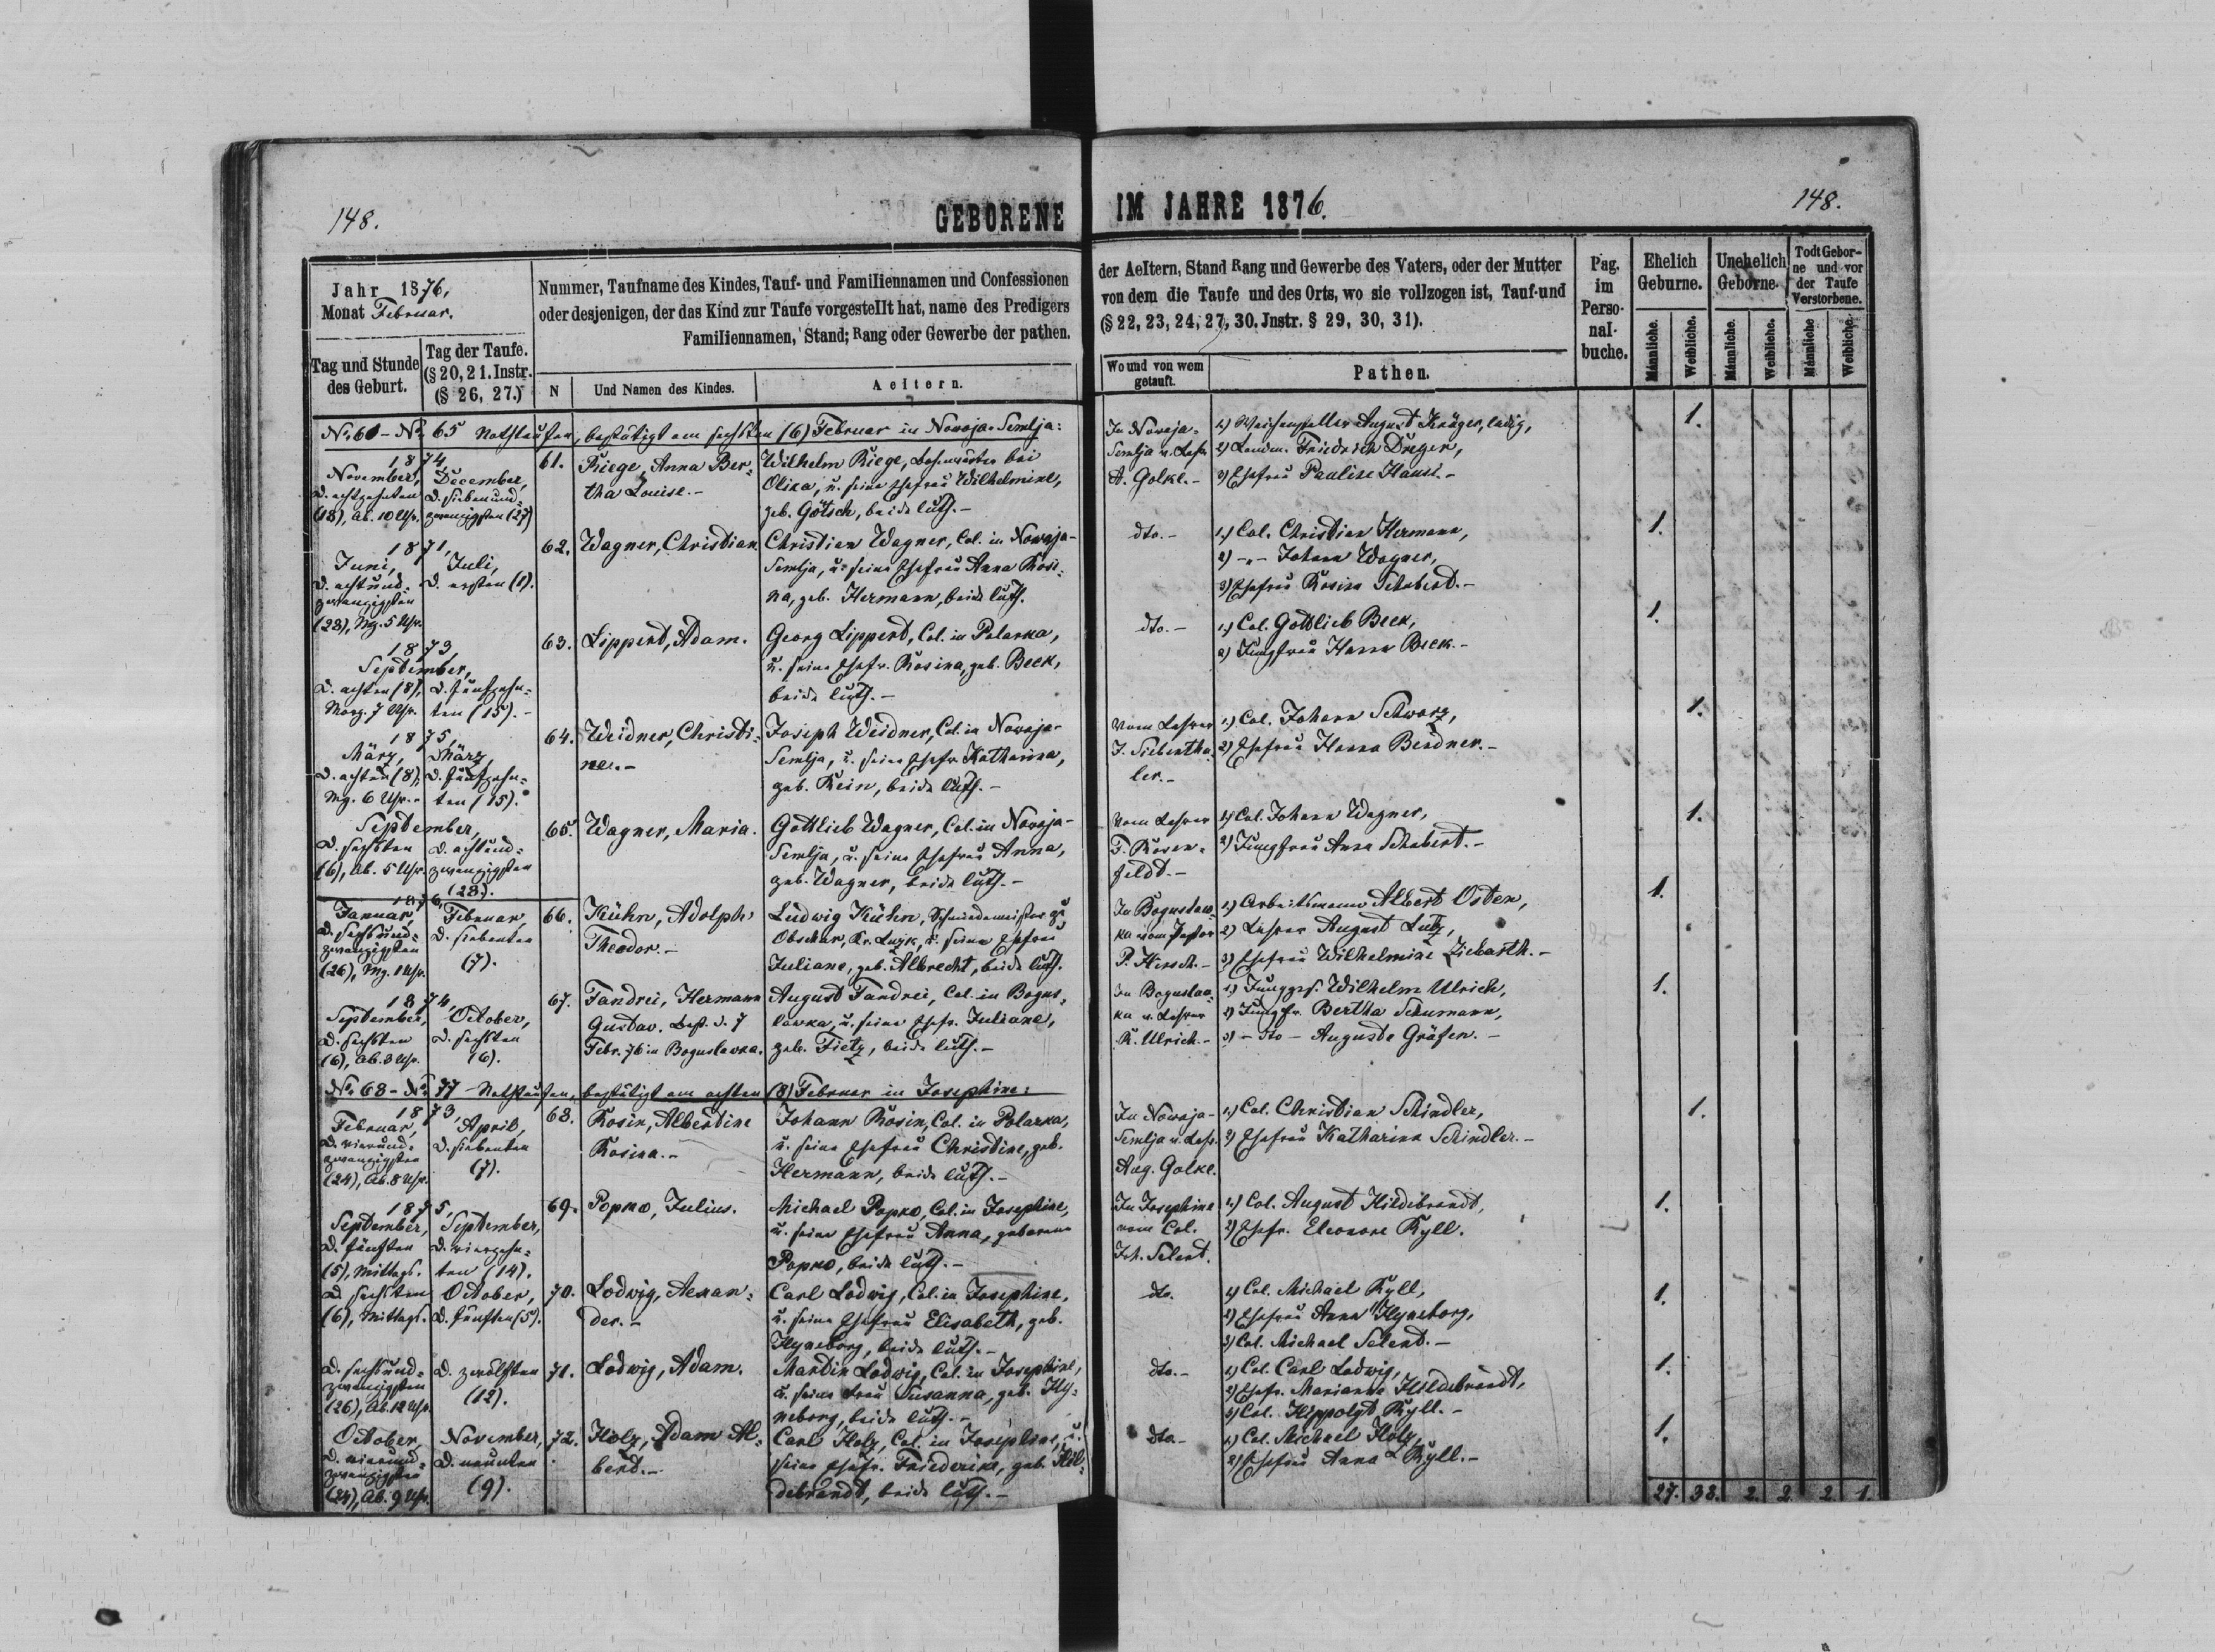 148.
GEBORENE
IM JAHRE 1876.
148.
Jahr 1876,
Monat Februar.
Tag und Stunde
des Geburt.
Tag der Taufe.
(§ 20, 21. Instr.
(§ 26, 27.)
Nummer, Taufname des Kindes, Tauf- und Familiennamen und Confessionen
oder desjenigen, der das Kind zur Taufe vorgestellt hat, name des Predigers
Familiennamen, Stand; Rang oder Gewerbe der pathen.
N
Und Namen des Kindes.
Aeltern.
der Aeltern, Stand Rang und Gewerbe des Vaters, oder der Mutter
von dem die Taufe und des Orts, wo sie vollzogen ist, Tauf-und
(§ 22, 23, 24, 27, 30. Jnstr. § 29, 30, 31).
Wo und von wem
getauft.
Pathen.
Pag.
im
Perso-
nal-
buche.
Ehelich
Geburne.
Unehelich
Geborne.
Todt Gebor-
ne und vor
der Taufe
Verstorbene.
Männliche.
Weibliche.
Männliche.
Weibliche.
Männliche
Weibliche.
No 61 - No 65 Nothtaufen, bestätigt am sechsten (6) Februar in Nowaja-Semlja:
1874,
November,
D. achtzehnten
(18), Ab. 10 Uhr.
December,
D. siebenund-
zwanzigsten (27)
61.
Riege, Anna Ber-
tha Louise.-
Wilhelm Riege, bei
Olika, u. seine Ehefrau Wilhelmine,
geb. Götsch, beide luth.-
In Nowaja-
Semlja v. Lehr.
A. Golke.-
1.) Weichensteller August Krüger, ledig,
2) Friedrich Dreger,
3) Ehefrau Pauline
1.
1871,
Juni,
D. achtund-
zwanzigsten
(28), Mg. 5 Uhr.
Juli,
D. ersten (1).
62.
Wagner, Christian
Christian Wagner, Col. in Nowaja-
Semlja, u. seine Ehefrau Anna Rosi-
na, geb. Hermann, beide luth.
dto.-
1.) Col. Christian Hermann,
2) -"- Johann Wagner,
3) Ehefrau Rosina Schubert.-
1.
1873,
September,
D. achten (8),
Morg. 7 Uhr.
D. fünfzehn-
ten (15).-
63.
Lippert, Adam.
Georg Lippert, Col. in Polanka,
u. seine Ehefr. Rosina, geb. Beck,
beide luth.-
dto.-
1.) Col. Gottlieb Beck,
2) Jungfrau Hanna Beck.-
1.
1875,
März,
D. achten (8),
Mg. 6 Uhr.-
März,
D. fünfzehn-
ten (15).
64.
Weidner, Christi-
ne.-
Joseph Weidner, Col. in Nowaja-
Semlja, u. seine Ehefr. Katharina,
geb. Rein, beide luth.-
Vom Lehrer
J. Siebentha-
ler.-
1.) Col. Johann Schwarz,
2) Ehefrau Hanna
1.
September,
D. sechsten
(6), Ab. 5 Uhr.
D. achtund-
zwanzigsten
(28).
65.
Wagner, Maria.
Gottlieb Wagner, Col. in Nowaja-
Semlja, u. seine Ehefrau Anna,
geb. Wagner, beide luth.-
Vom Lehrer
F. Rosen-
feldt.-
1) Col. Johann Wagner,
2) Jungfrau Anna Schubert.-
1.
1876,
Januar,
D. sechsund-
zwanzigsten
(26), Mg. 1 Uhr.
Februar,
D. siebenten
(7).
66.
Kühn, Adolph
Theodor.-
Ludwig Kühn, Schmiedemeister zu
Kr. Luzk, u. seine Ehefrau
Juliane, geb. Albrecht, beide luth.
In Boguslaw-
ka vom Pastor
P. Hirsch.-
1.) Arbeitsmann Albert Osten,
2) Lehrer August Lutz,
3) Ehefrau Wilhelmine Ziebarth.-
1.
1874,
September,
D. sechsten
(6), Ab. 8 Uhr.
October,
D. sechsten
(6).
67.
Jandrei, Hermann
Gustav. Best. d. 7
Febr. 76 in Boguslawka.
August Jandrei, Col. in Bogus-
lawka, u. seine Ehefr. Juliane,
geb. Tietz, beide luth.-
In Boguslaw-
ka v. Lehrer
R. Ulrich.-
1.) Junggs. Wilhelm Ulrich,
2) Jungfr. Bertha Schumann,
3) - dto - Auguste Gräfen.-
1.
No 68 - No 77 Nothtaufen, bestätigt am achten (8) Februar in Josephine:
1873,
Februar,
D. vierund-
zwanzigsten
(24), Ab. 8 Uhr.
April,
D. siebenten
(7).
68.
Rosin, Albertine
Rosina.-
Johann Rosin, Col. in Polanka,
u. seine Ehefrau Christine, geb.
Hermann, beide luth.-
In Nowaja-
Semlja v. Lehr.
Aug. Golke.
1.) Col. Christian Schindler,
2) Ehefrau Katharina Schindler.-
1.
1875,
September,
D. fünften
(5), Mittags.
September,
D. vierzehn-
ten (14).
69.
Popko, Julius.
Michael Popko, Col. in Josephine,
u. seine Ehefrau Anna, geborene
Popko, beide luth.-
In Josephine
vom Col.
Joh. Selent.
1.) Col. August Hildebrandt,
2) Ehefr. Eleonore Ryll.
1.
D. sechsten
(6), Mittags.
October,
D. fünften (5).
70.
Lodwig,
der.-
Carl Lodwig, Col. in Josephine,
u. seine Ehefrau Elisabeth, geb.
Hyneborg, beide luth.-
dto.
1) Col. Michael Ryll,
2) Ehefrau Anna Hyneborg,
3) Col. Michael Selent.-
1.
D. sechsund-
zwanzigsten
(26), Ab. 12 Uhr.
D. zwölften
(12).
71.
Lodwig, Adam.
Martin Lodwig, Col. in Josephine,
u. seine Frau Susanna, geb. Hy-
neborg, beide luth.-
dto.-
1.) Col. Carl Lodwig,
2) Ehefr. Marianna Hildebrandt,
3) Col. Hippolyt Ryll.-
1.
October,
D. vierund-
zwanzigsten
(24), Ab. 9 Uhr.
November,
D. neunten
(9).
72.
Holz, Adam Al-
bert.-
Carl Holz, Col. in Josephine, u.
seine Ehefr. Friederike, geb. Hil-
debrandt, beide luth.-
dto.-
1.) Col. Michael Holz,
2) Ehefrau Anna Ryll.-
1.
27. 38. 2. 2. 2. 1.